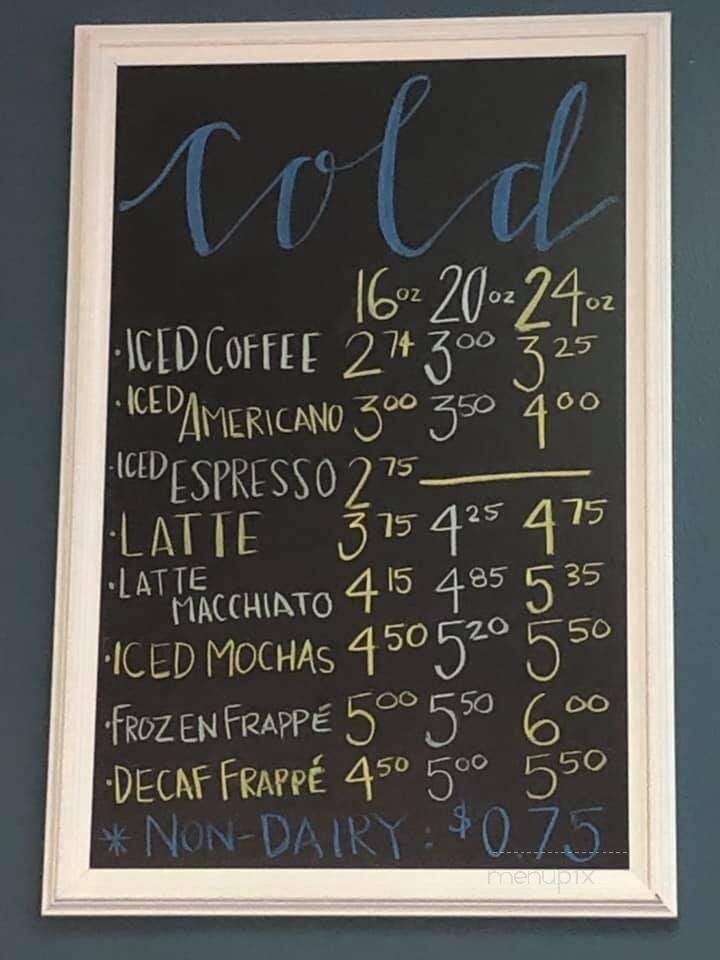 cold
16oz 20oz 24oz
·ICED COFFEE 2 74 3 00 3 25
·ICED AMERICANO 3 00 3 50 4 00
·ICED ESPRESSO 2 75
·LATTE 3 75 4 25 4 75
·LATTE MACCHIATO 4 15 4 85 5 35
·ICED MOCHAS 4 50 5 20 5 50
·FROZEN FRAPPÉ 5 00 5 50 6 00
·DECAF FRAPPÉ 4 50 5 00 5 50
* NON-DAIRY: $0.75
menupix